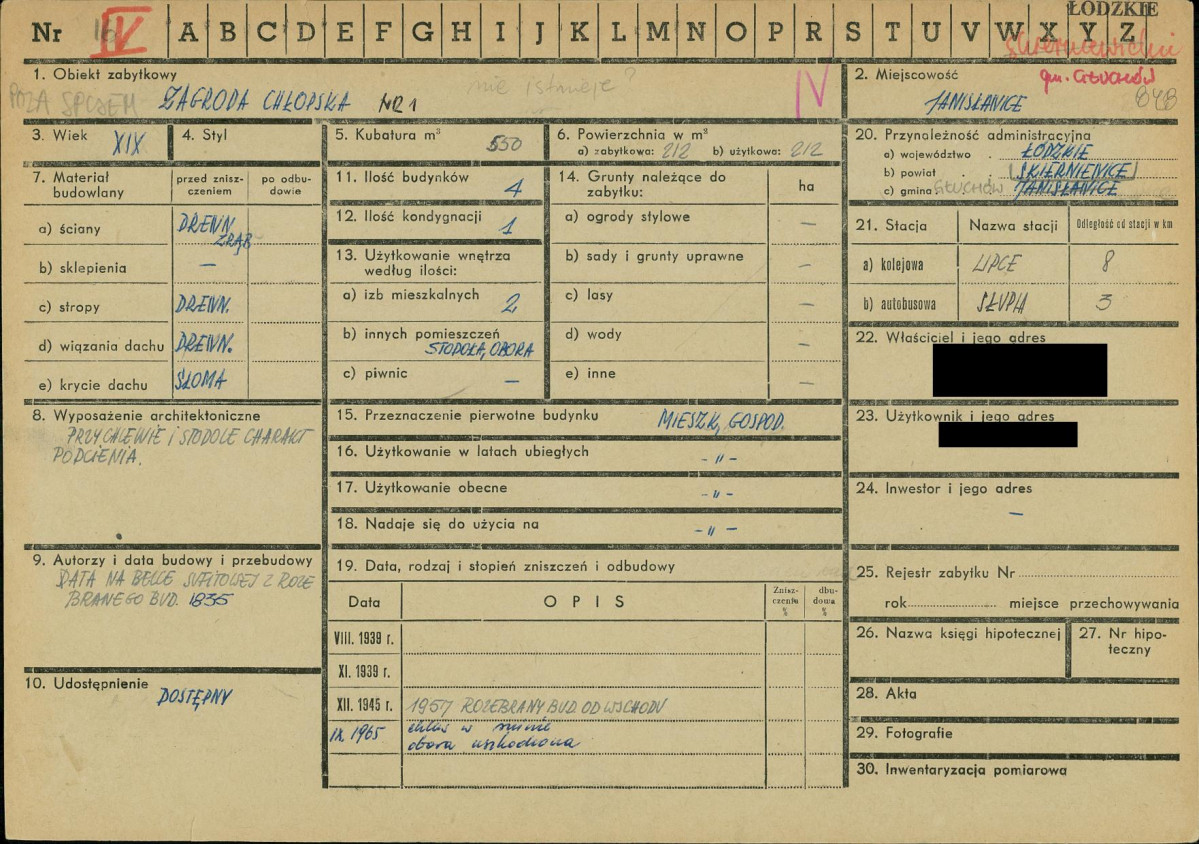 ŁÓDZKIE
Nr IV A B C D E F G H I J K L M N O P R S T U V W X Y Z
skierniewickie
1. Obiekt zabytkowy
nie istnieje?
POZA SPISEM ZAGRODA CHŁOPSKA NR 1
IV
2. Miejscowość
gm. GŁUCHÓW
848
JANISŁAWICE
3. Wiek XIX
4. Styl
5. Kubatura m³ 550
6. Powierzchnia w m²
a) zabytkowa: 212 b) użytkowa: 212
20. Przynależność administracyjna
a) województwo ŁÓDZKIE
b) powiat SKIERNIEWICE
c) gmina GŁUCHÓW JANISŁAWICE
7. Materiał budowlany
przed zniszczeniem
po odbudowie
a) ściany DREWN. ZRĄB
b) sklepienia —
c) stropy DREWN.
d) wiązania dachu DREWN.
e) krycie dachu SŁOMA
11. Ilość budynków 4
12. Ilość kondygnacji 1
13. Użytkowanie wnętrza według ilości:
a) izb mieszkalnych 2
b) innych pomieszczeń
STODOŁA, OBORA
c) piwnic —
14. Grunty należące do zabytku:
ha
a) ogrody stylowe —
b) sady i grunty uprawne —
c) lasy —
d) wody —
e) inne —
21. Stacja Nazwa stacji Odległość od stacji w km
a) kolejowa LIPCE 8
b) autobusowa SŁUPIA 3
22. Właściciel i jego adres
8. Wyposażenie architektoniczne
PRZY CHLEWIE i STODOLE CHARAKT
PODCIENIA.
15. Przeznaczenie pierwotne budynku MIESZK, GOSPOD.
16. Użytkowanie w latach ubiegłych - „ -
17. Użytkowanie obecne - „ -
18. Nadaje się do użycia na - „ -
23. Użytkownik i jego adres
24. Inwestor i jego adres
—
9. Autorzy i data budowy i przebudowy
DATA NA BELCE SUFITOWEJ Z ROZE
BRANEGO BUD. 1835
10. Udostępnienie
DOSTĘPNY
19. Data, rodzaj i stopień zniszczeń i odbudowy
Data OPIS Zniszczenia % dbudowa %
VIII. 1939 r.
XI. 1939 r.
XII. 1945 r. 1957 ROZEBRANY BUD. OD WSCHODU
IX. 1965 chlew w ruinie
obora uszkodzona
25. Rejestr zabytku Nr
rok miejsce przechowywania
26. Nazwa księgi hipotecznej
27. Nr hipoteczny
28. Akta
29. Fotografie
30. Inwentaryzacja pomiarowa